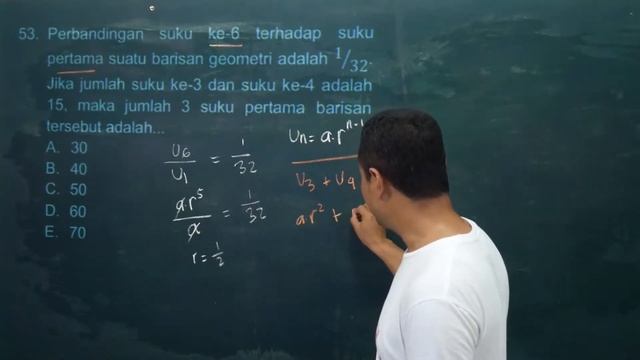 53. Perbandingan suku ke-6 terhadap suku
pertama suatu barisan geometri adalah 1/32.
Jika jumlah suku ke-3 dan suku ke-4 adalah
15, maka jumlah 3 suku pertama barisan
tersebut adalah...
A. 30
B. 40
C. 50
D. 60
E. 70
U6/U1 = 1/32
ar⁵/a = 1/32
r = 1/2
Un = a.rⁿ⁻¹
U3 + U4
ar² +